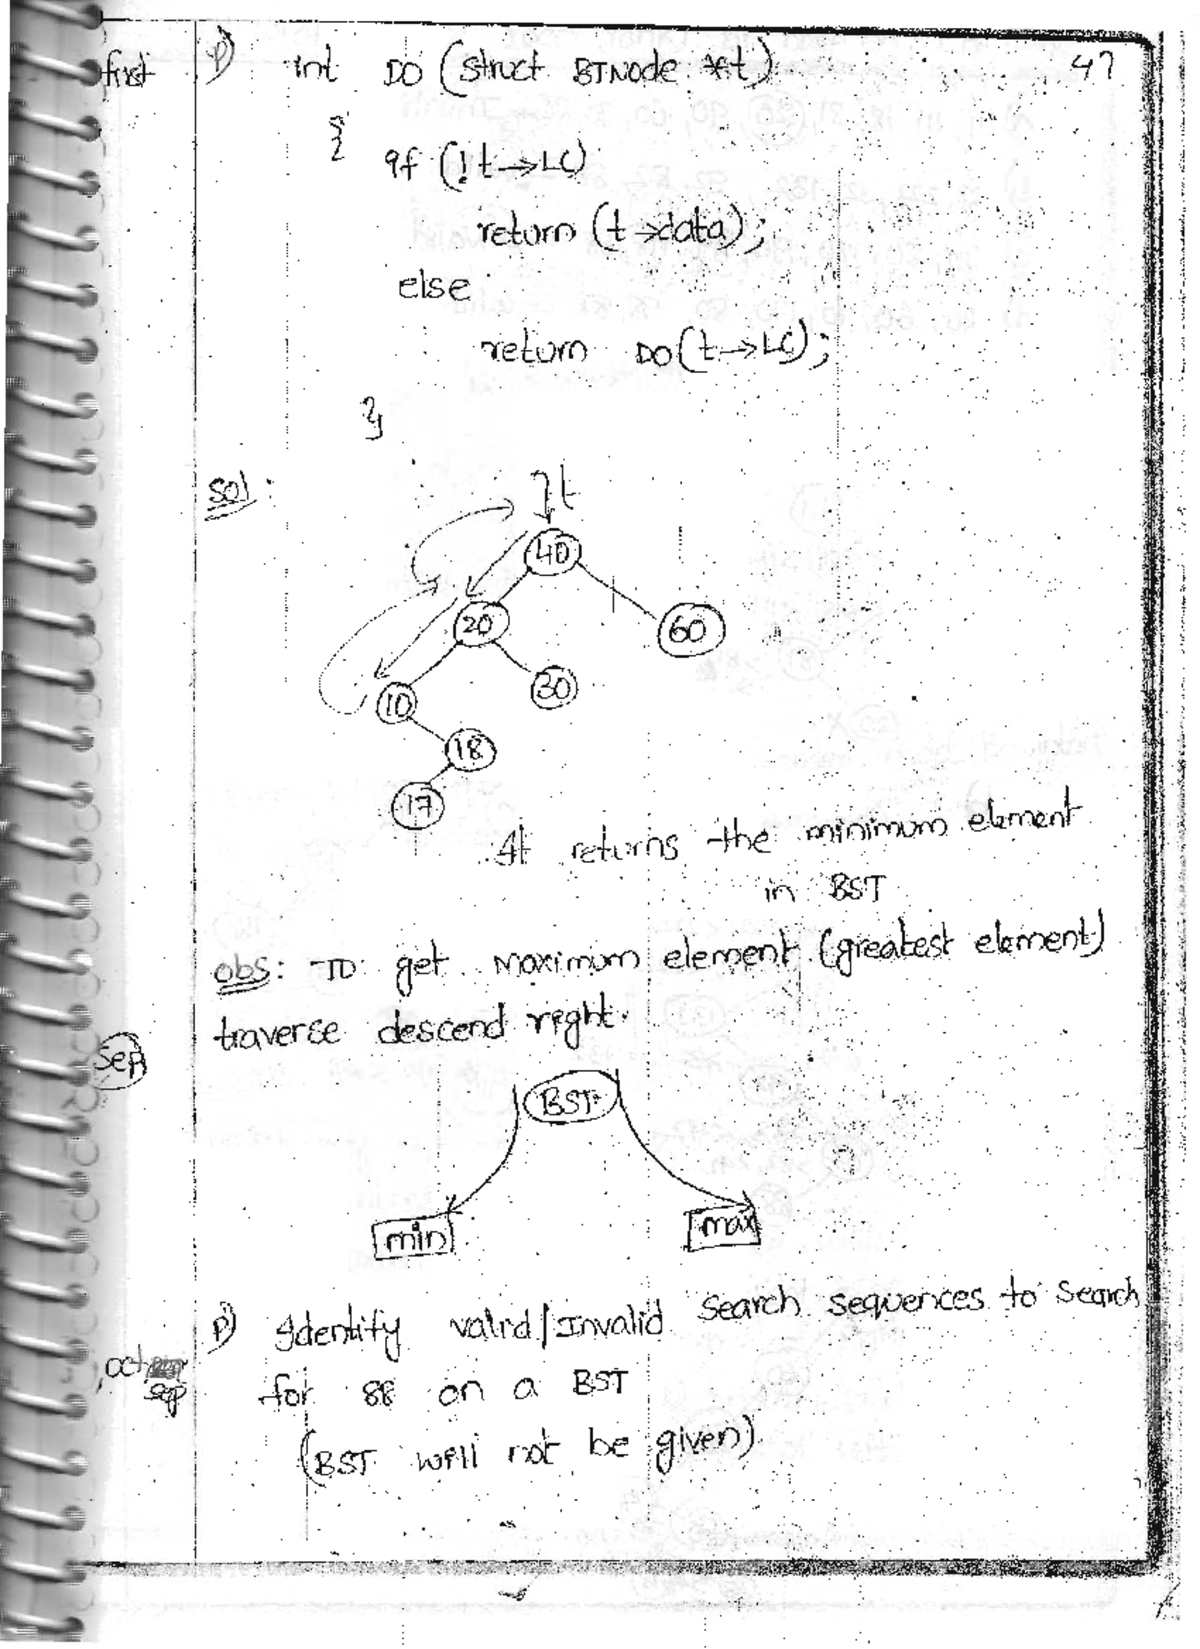 first P) int DO (struct BTNode *t) 47
{
if (!t→LC)
return (t→data);
else
return DO(t→LC);
}
Sol: t
40
20 60
10 30
18
17
It returns the minimum element
in BST
obs: To get maximum element (greatest element)
traverse descend right.
BST
min max
P) Identify valid/Invalid search sequences to search
oct
sep for 88 on a BST
(BST will not be given)